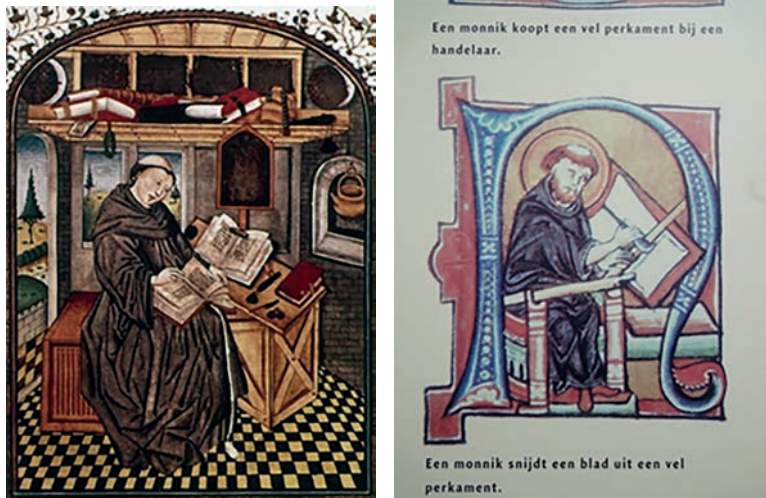 Een monnik koopt een vel perkament bij een
handelaar.
Een monnik snijdt een blad uit een vel
perkament.